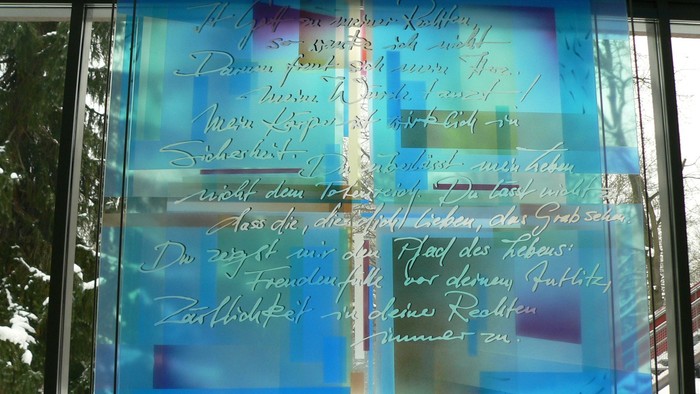 Ist Gott zu meiner Rechten,
so wanke ich nicht
Darum freut sich mein Herz.
meine Würde tanzt!
Mein Körper ist wirklich in
Sicherheit. Du überlässt mein Leben
nicht dem Totenreich, Du lässt nicht zu,
dass die, die dich lieben, das Grab sehn.
Du zeigst mir den Pfad des Lebens:
Freudenfülle vor deinem Antlitz,
Zärtlichkeit in deiner Rechten
immer zu.